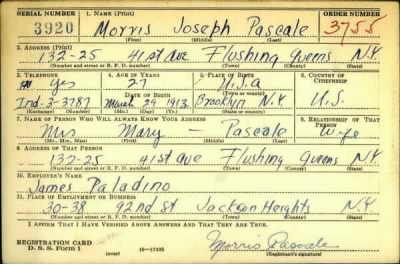 SERIAL NUMBER 1. NAME (Print) ORDER NUMBER
3920 Morris Joseph Pascale 3755
(First) (Middle) (Last)
2. ADDRESS (Print)
132-25 41st Ave Flushing Queens N.Y.
(Number and street or R. F. D. number) (Town) (County) (State)
3. TELEPHONE 4. AGE IN YEARS 5. PLACE OF BIRTH 6. COUNTRY OF CITIZENSHIP
Yes 27 U.S.A
DATE OF BIRTH (Town or county)
Ind-3-3787 March 29 1913 Brooklyn N.Y. U.S.
(Exchange) (Number) (Mo.) (Day) (Yr.) (State or country)
7. NAME OF PERSON WHO WILL ALWAYS KNOW YOUR ADDRESS 8. RELATIONSHIP OF THAT PERSON
Mrs Mary — Pascale Wife
(Mr., Mrs., Miss) (First) (Middle) (Last)
9. ADDRESS OF THAT PERSON
132-25 41st Ave Flushing Queens N.Y.
(Number and street or R. F. D. number) (Town) (County) (State)
10. EMPLOYER'S NAME
James Paladino
11. PLACE OF EMPLOYMENT OR BUSINESS
30-38 92nd St Jackson Heights N.Y.
(Number and street or R. F. D. number) (Town) (County) (State)
I AFFIRM THAT I HAVE VERIFIED ABOVE ANSWERS AND THAT THEY ARE TRUE.
REGISTRATION CARD
D. S. S. Form 1 16—17105 Morris Pascale
(Registrant's signature)